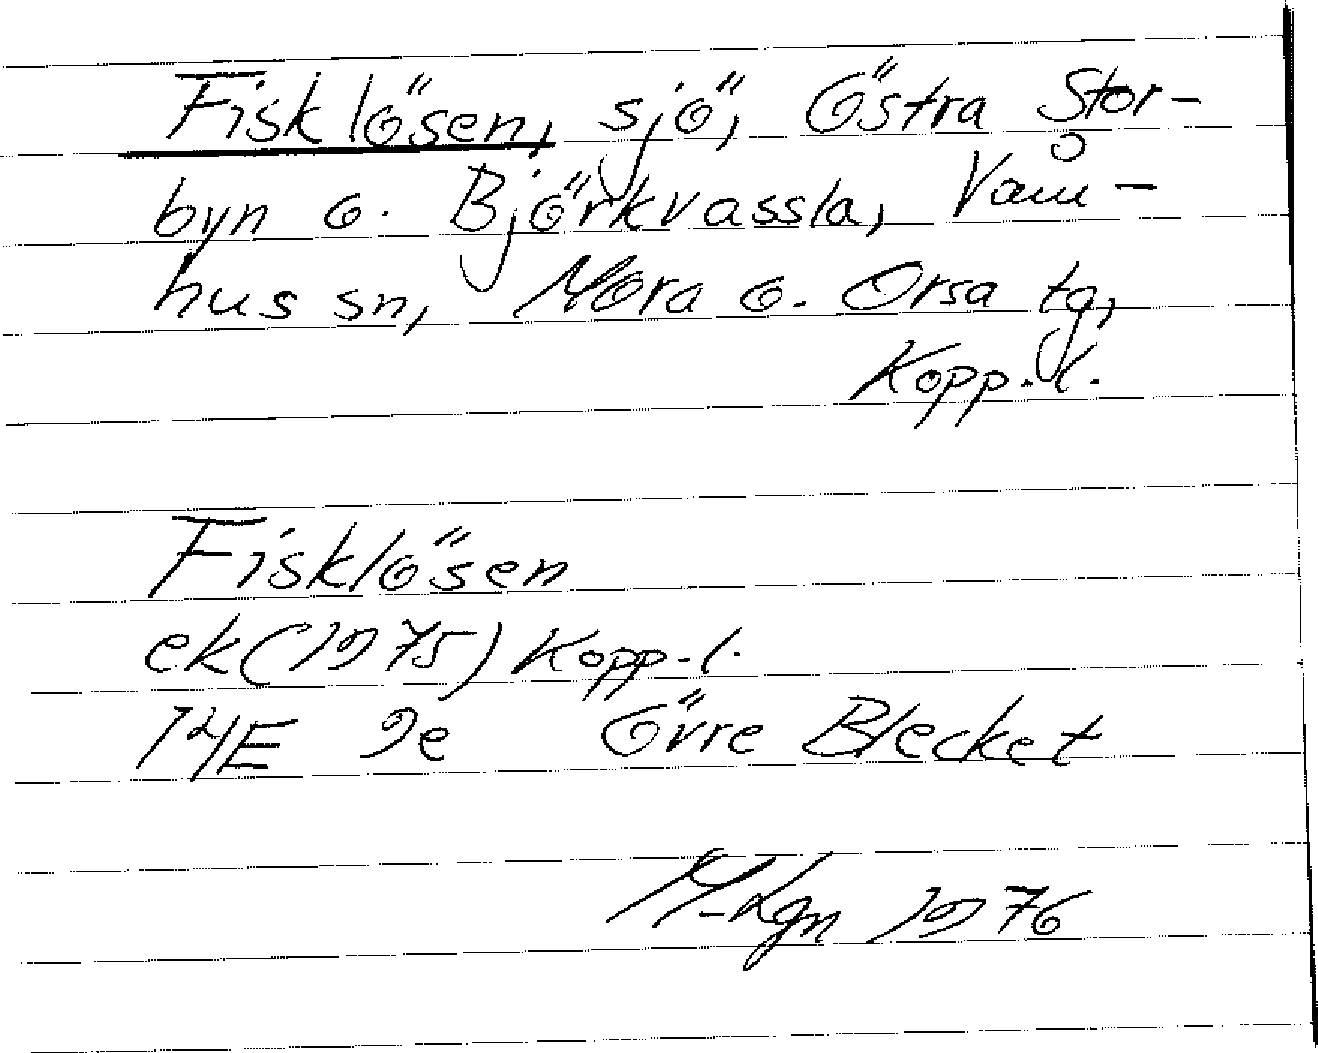 Fisklösen, sjö, Östra Stor-
byn o. Björkvassla, Våm-
hus sn, Mora o. Orsa tg,
Kopp. l.
Fisklösen
ek(1975) Kopp. l.
14E 9e Övre Blecket
M-Lgn 1976